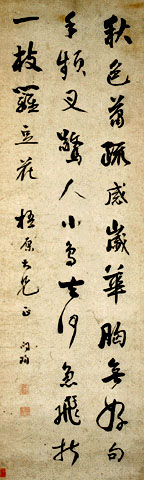 秋色蕭疏感歲華胸無好句
手頻叉驚人小鳥去何急飛折
一枝羅豆花 梧原大兄正